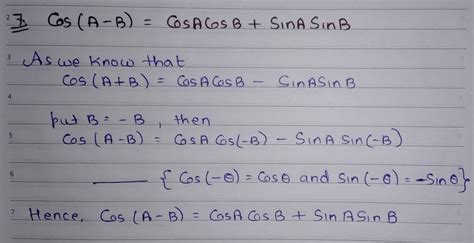 2 7 Cos (A-B) = CosACosB + SinASinB
3 As we know that
Cos (A+B) = CosACosB - SinASinB
4
put B = -B, then
5 Cos (A-B) = CosA Cos(-B) - SinA Sin(-B)
6 —— { Cos(-θ) = Cosθ and Sin(-θ) = -Sinθ}
7 Hence, Cos (A-B) = CosACosB + SinASinB